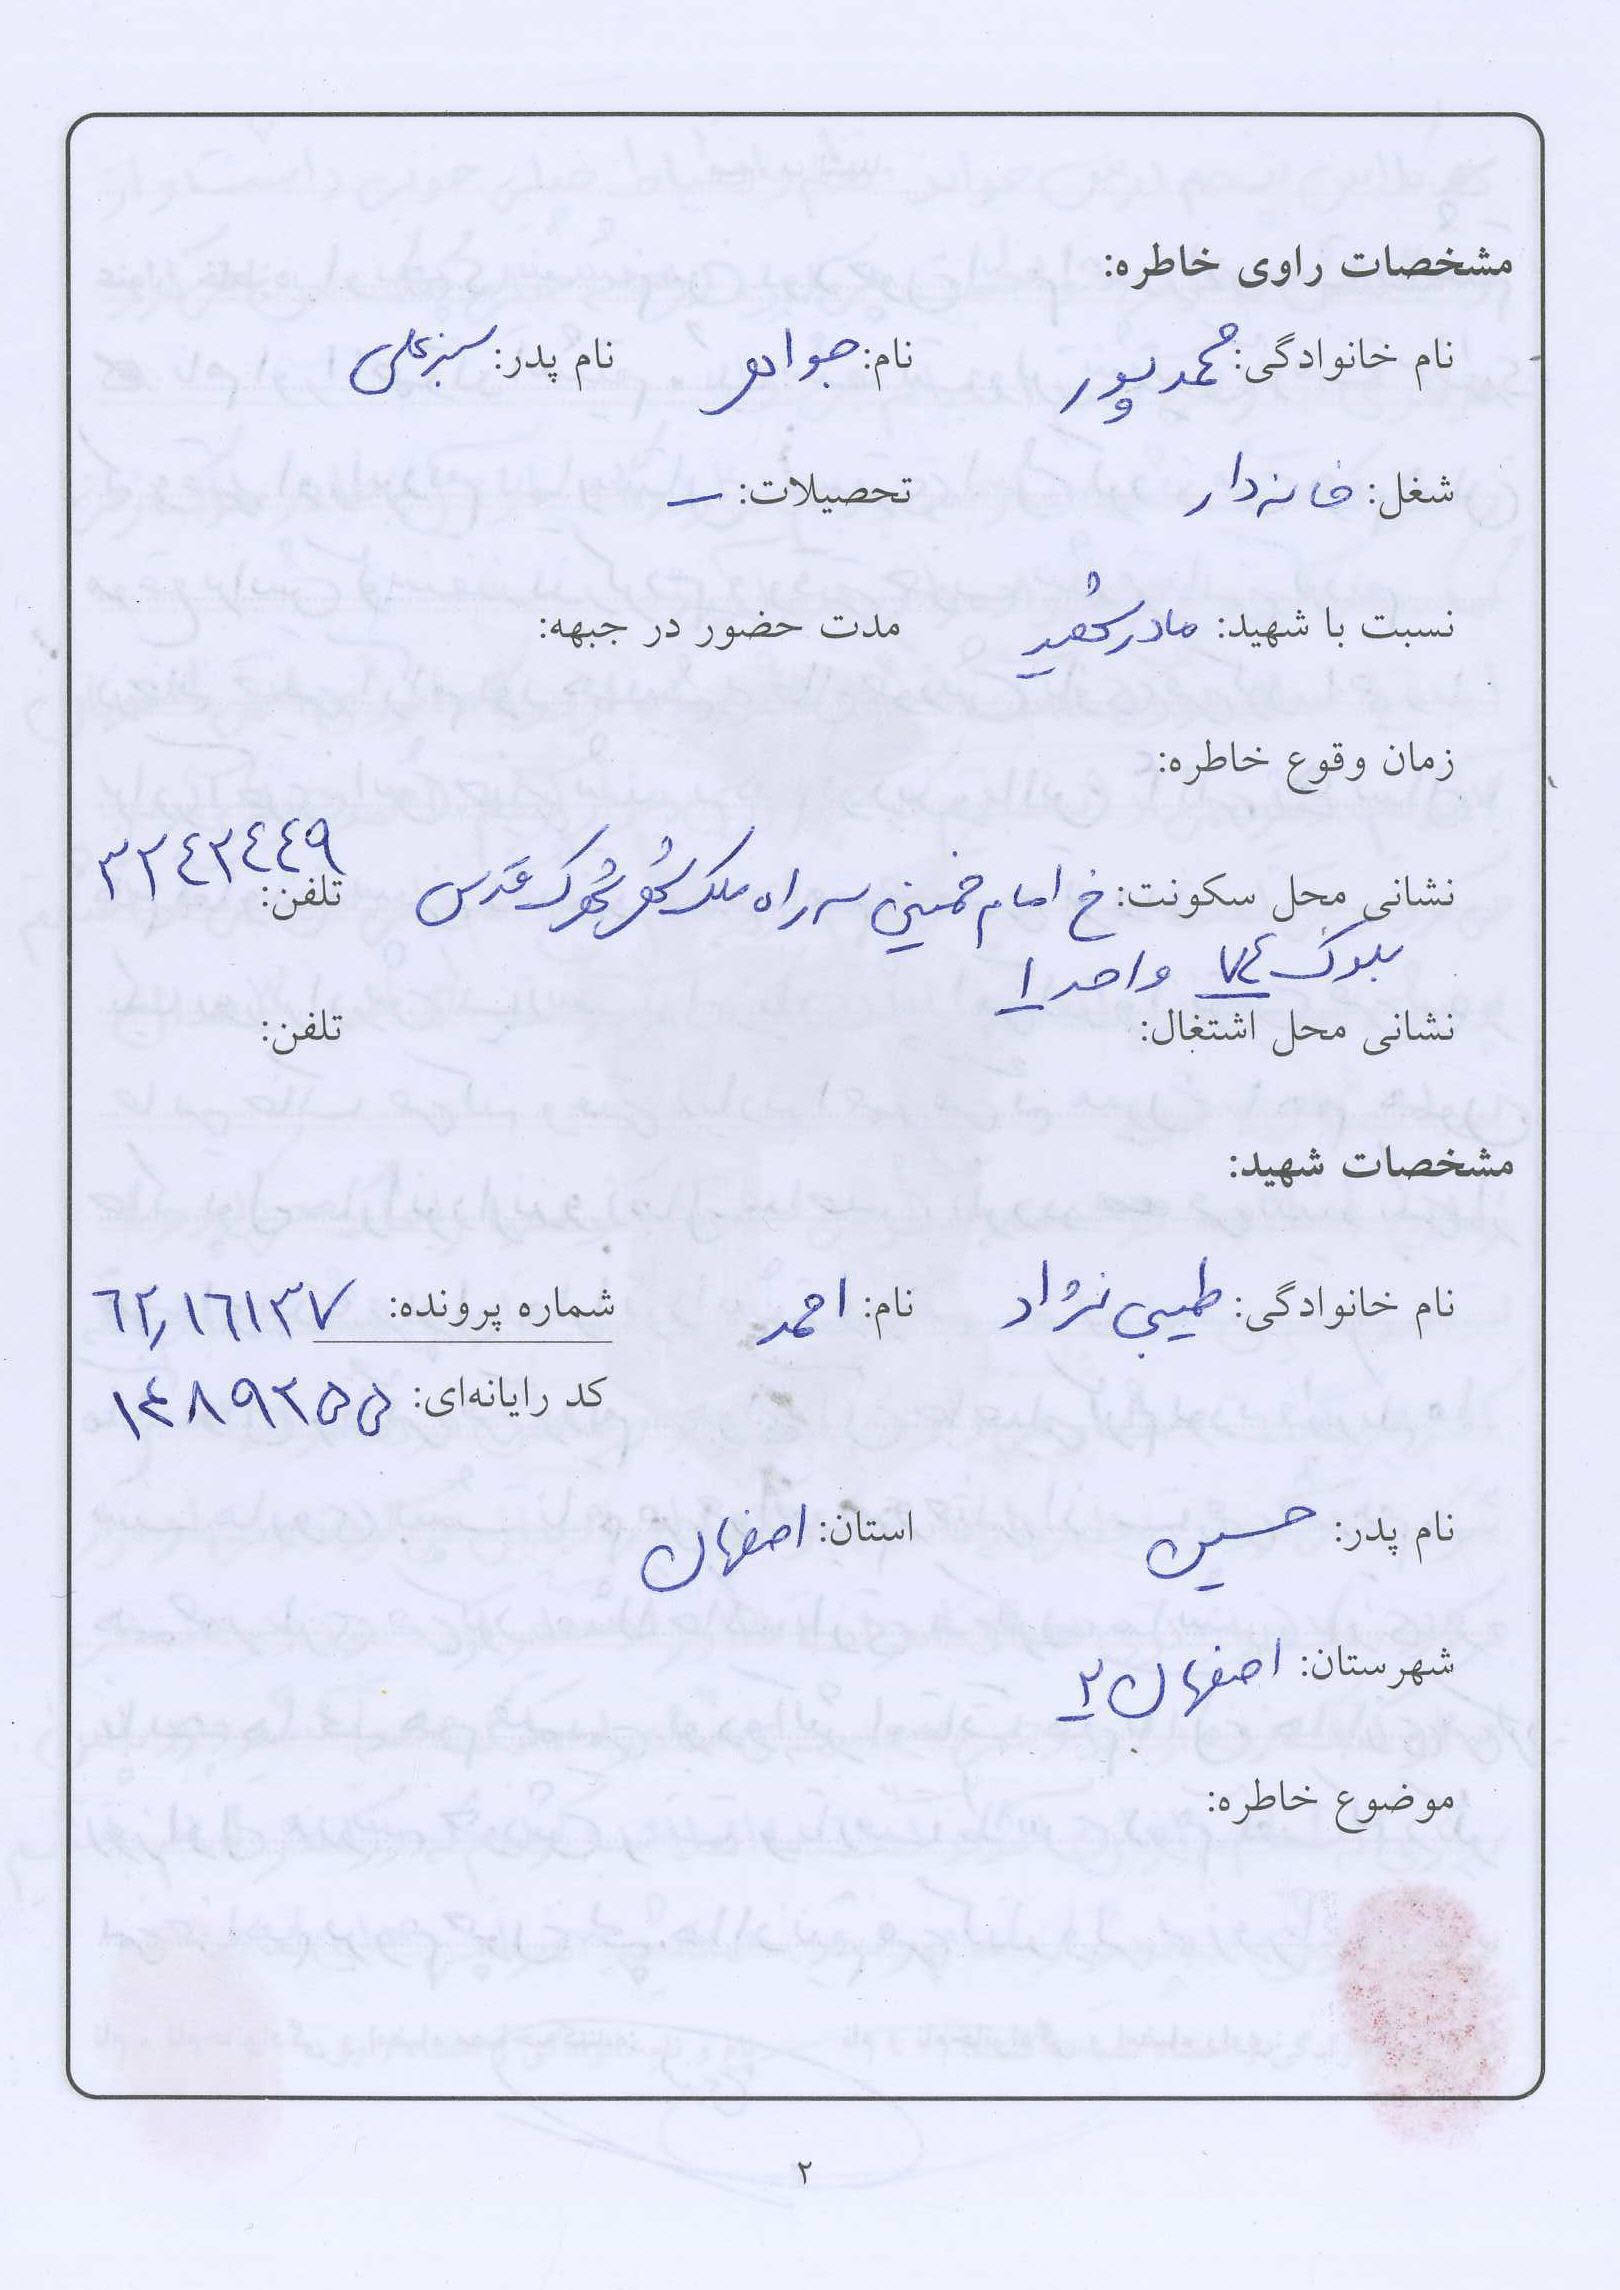 مشخصات راوی خاطره:
نام خانوادگی: محمدپور نام: جواهر نام پدر: سبزعلی
شغل: خانه‌دار تحصیلات: –
نسبت با شهید: مادر شهید مدت حضور در جبهه:
زمان وقوع خاطره:
نشانی محل سکونت: خ امام خمینی سه راه ملک شهر شهرک قدس تلفن: ٣٢٤٢٤٤٩
بلوک ٧٤ واحد ١
نشانی محل اشتغال: تلفن:
مشخصات شهید:
نام خانوادگی: طبیبی نژاد نام: احمد شماره پرونده: ٦٢,١٦١٣٧
کد رایانه‌ای: ١٤٨٩٢۵۵
نام پدر: حسین استان: اصفهان
شهرستان: اصفهان ٢
موضوع خاطره:
۲